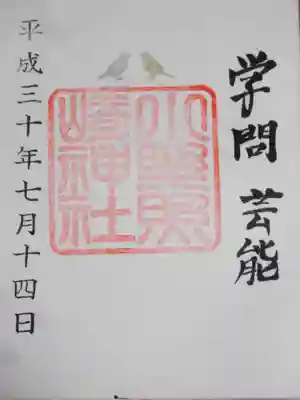 学問 芸能
小野照
崎神社
平成三十年七月十四日